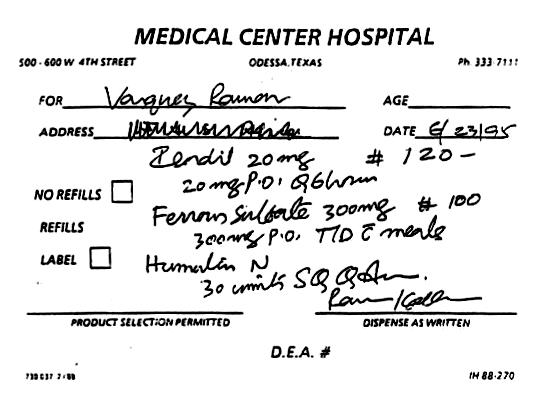 MEDICAL CENTER HOSPITAL
500 - 600 W 4TH STREET ODESSA, TEXAS Ph. 333-7111
FOR Vasquez Ramon AGE
ADDRESS DATE 6/23/95
20mg # 120 -
NO REFILLS 20mg P.O. Q6hours
Ferrous Sulfate 300mg # 100
REFILLS 300mg P.O. TID c̄ meals
LABEL Humulin N
30 units SQ
PRODUCT SELECTION PERMITTED DISPENSE AS WRITTEN
D.E.A. #
IH 88-270